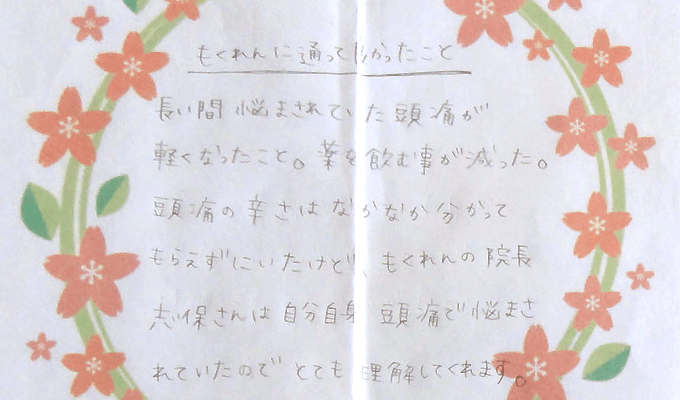 もくれんに通って良かったこと
長い間悩まされていた頭痛が
軽くなったこと。薬を飲む事が減った。
頭痛の辛さはなかなか分かって
もらえずにいたけど、もくれんの院長
志保さんは自分自身頭痛で悩まさ
れていたのでとても理解してくれます。